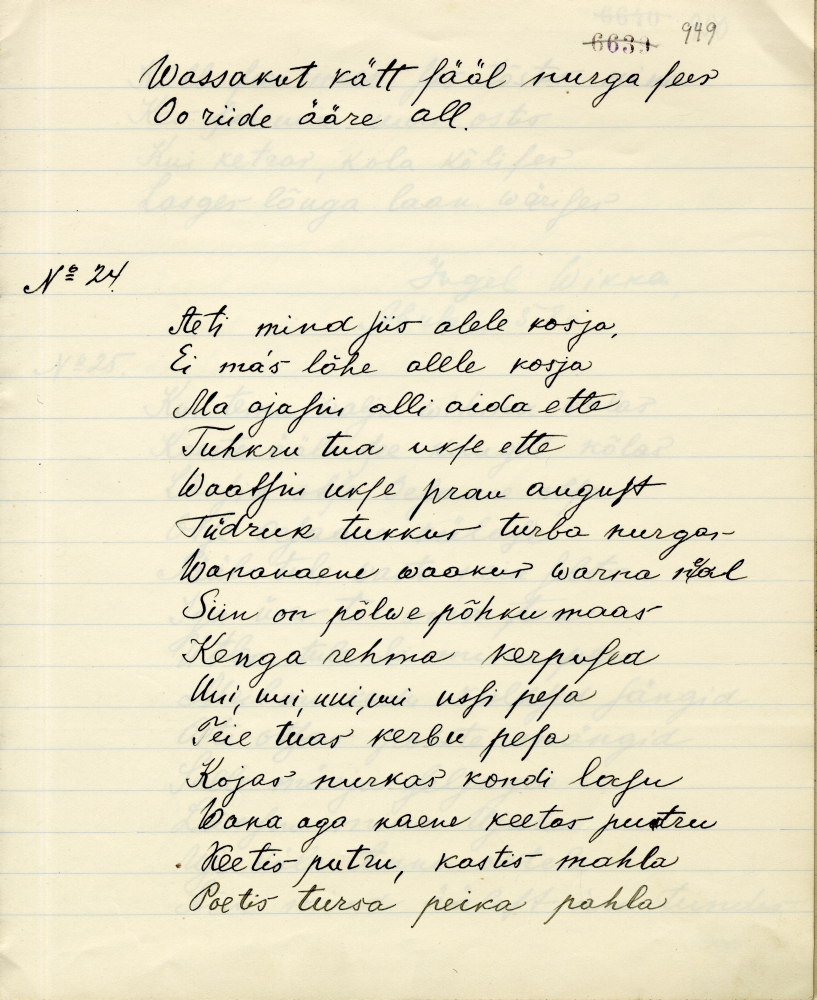 6639 949
Wassakut kätt sääl nurga sees
Oo riide ääre all.
No 24.
Aeti mind siis alele kosja,
Ei ma's lähe allle kosja
Ma ajasin alli aida ette
Tuhkru tua ukse ette
Waatsin ukse prau august
Tüdruk tukkus turba nurgas
Wananaene waakus warna nal
Siin on põlwe põhku maas
Kenga rehma kerpused
Uui, uui, uui, uui ussi pesa
Teie tuas kerbu pesa
Kojas nurkas kondi lasu
Wana aga naene keetas putru
Keetis putru, kastis mahla
Poetis tursa peika pahla